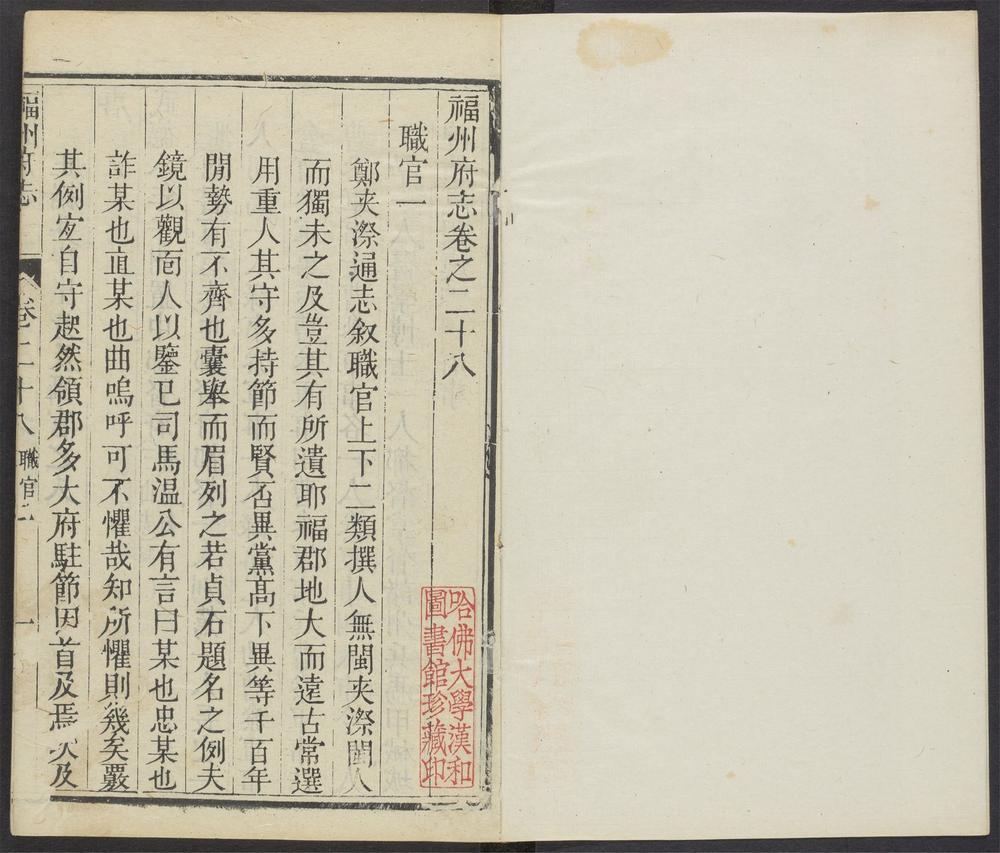 福州府志卷之二十八
職官一
鄭夾漈通志叙職官上下二類撰人無閩夾漈閩人
而獨未之及豈其有所遺耶福郡地大而遠古常選
用重人其守多持節而賢否異黨高下異等千百年
閒勢有不齊也囊舉而眉列之若貞石題名之例夫
鏡以觀面人以鑒已司馬温公有言曰某也忠某也
詐某也直某也曲嗚呼可不懼哉知所懼則幾矣覈
其例宜自守起然領郡多大府駐節因首及焉次及
福州府志
卷二十八
職官一
一
哈佛大學漢和
圖書館珍藏印